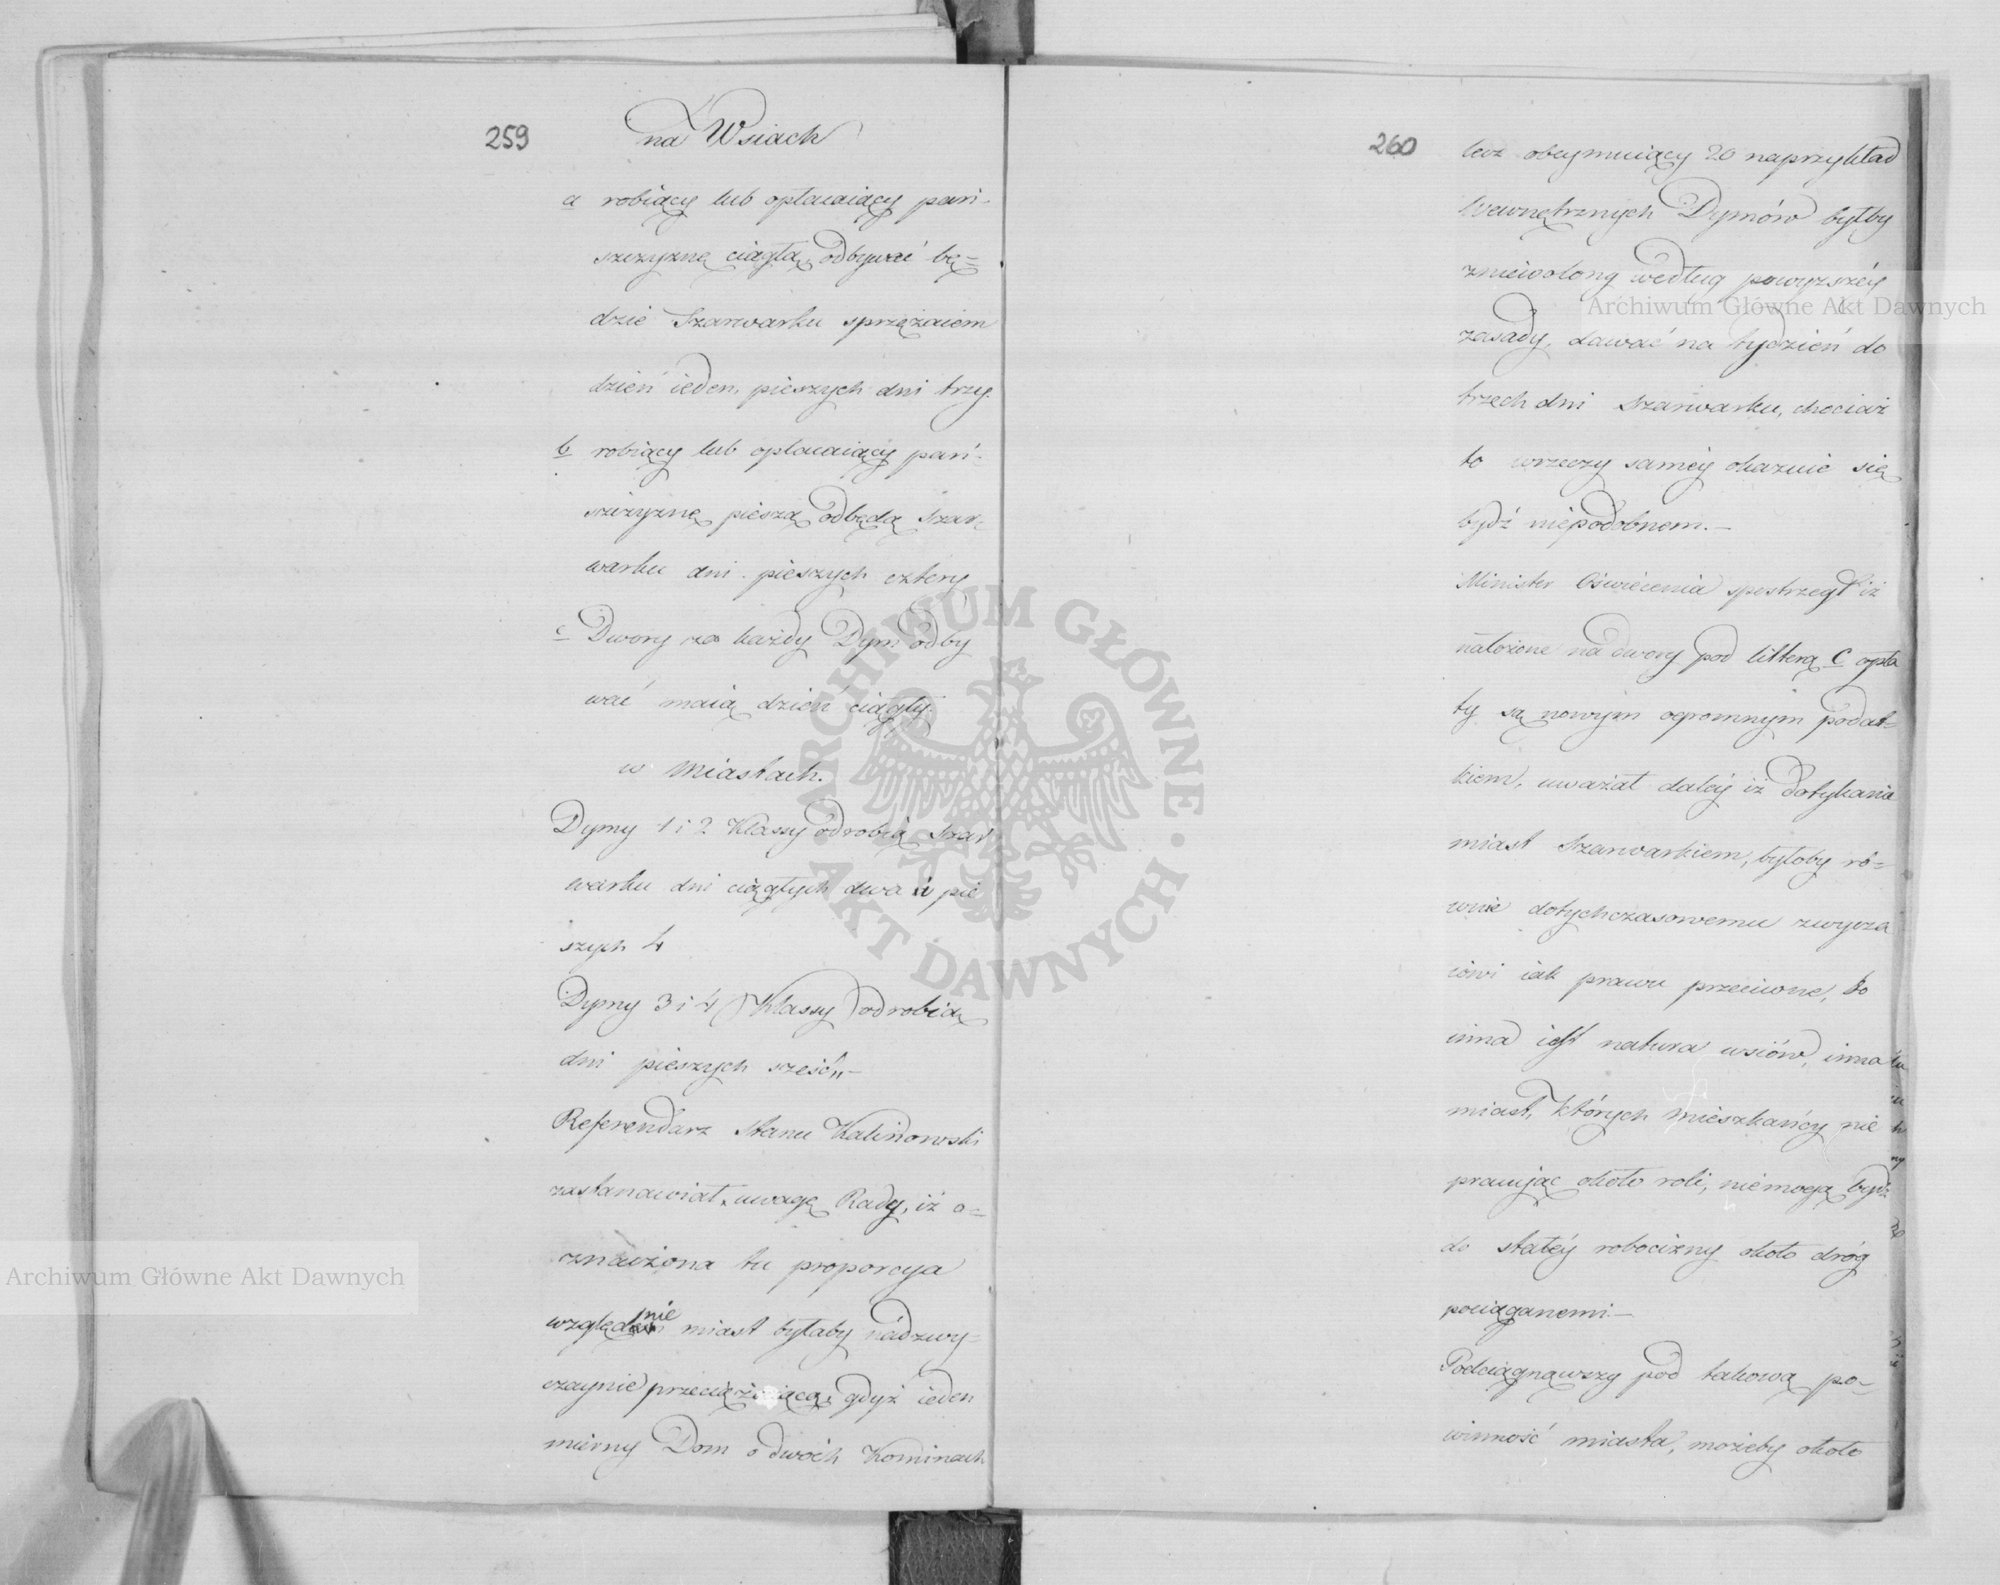 259
na Wsiach
a robiący lub opłacaiący pań-
szczyznę ciągłą, odbywać bę=
dzie Szarwarku sprzężaiem
dzień ieden, pieszych dni trzy.
b robiący lub opłacaiący pań-
szczyznę pieszą odbędą Szar-
warku dni pieszych cztery
c Dwory za każdy Dym odby
wać maią dzień ciągły.
w Miastach.
Dymy 1 i 2 Klassy odrobią Szar
warku dni ciągłych dwa i pie
szych 4
Dymy 3 i 4 Klassy odrobią
dni pieszych sześć„-
Referendarz Stanu Kalinowski
zastanawiał uwagę Rady, iż o=
znaczona tu proporcya
względnie miast byłaby nadzwy=
czaynie przeciążaiącą, gdyż ieden
mierny Dom o dwóch Kominach
260
lecz obeymuiący 20 naprzykład
wewnętrznych Dymów byłby
zniewolony według powyzszéy
zasady, dawać na tydzień do
trzech dni Szarwarku, chociaż
to wrzeczy saméy okazuie się
bydź niepodobnem.-
Minister Oświecenia spostrzegł iż
nałożone na dwory pod litterą C opła
ty są nowym ogromnym podat=
kiem, uważał daléy iż dotykanie
miast Szarwarkiem, byłoby ró=
wnie dotychczasowemu zwycza
iowi iak prawu przeciwne, bo
inna iest natura wsiów, inna
miast, których mieszkańcy nie
pracuiąc około roli, niemogą bydź
do stałéy robocizny około dróg
pociąganemi.-
Podciągnąwszy pod takową po=
winność miasta, możeby około
Archiwum Główne Akt Dawnych
Archiwum Główne Akt Dawnych
ARCHIWUM GŁÓWNE · AKT DAWNYCH ·